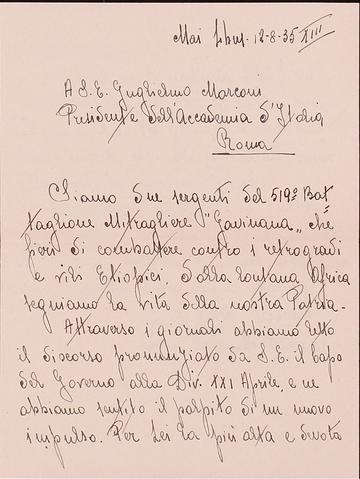 Mai 12-8-35 XIII
A S. E. Guglielmo Marconi
Presidente dell'Accademia d'Italia
Roma
Siamo due sergenti del 519º Bat
taglione Mitragliere "Gavinana" che
fieri di combattere contro i retrogradi
e vili Etiopici, dalla lontana Africa
seguiamo la vita della nostra Patria.
Attraverso i giornali abbiamo letto
il discorso pronunziato da S. E. il Capo
del Governo alla Div. XXI Aprile, e ne
abbiamo sentito il palpito di un nuovo
impulso. Per Lei la più alta e devota